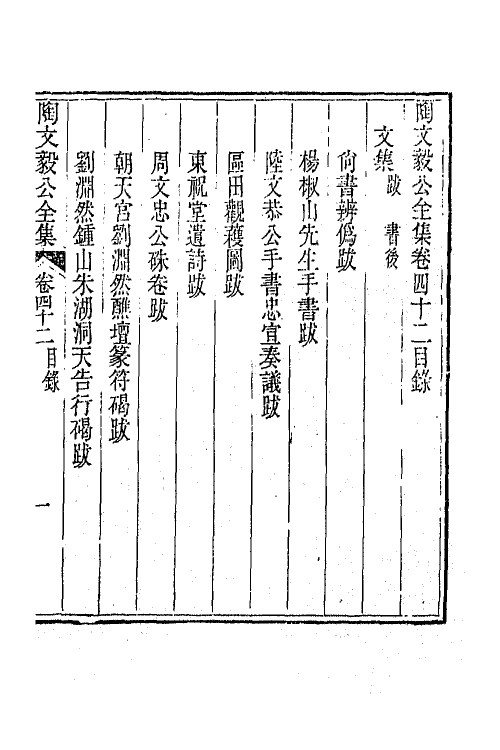 陶文毅公全集卷四十二目錄
文集 跋 書後
尙書辨僞跋
楊椒山先生手書跋
陸文恭公手書忠宣奏議跋
區田觀穫圖跋
東祝堂遺詩跋
周文忠公硃卷跋
朝天宮劉淵然醮壇篆符碣跋
劉淵然鍾山朱湖洞天告行碣跋
陶文毅公全集 卷四十二目錄 一